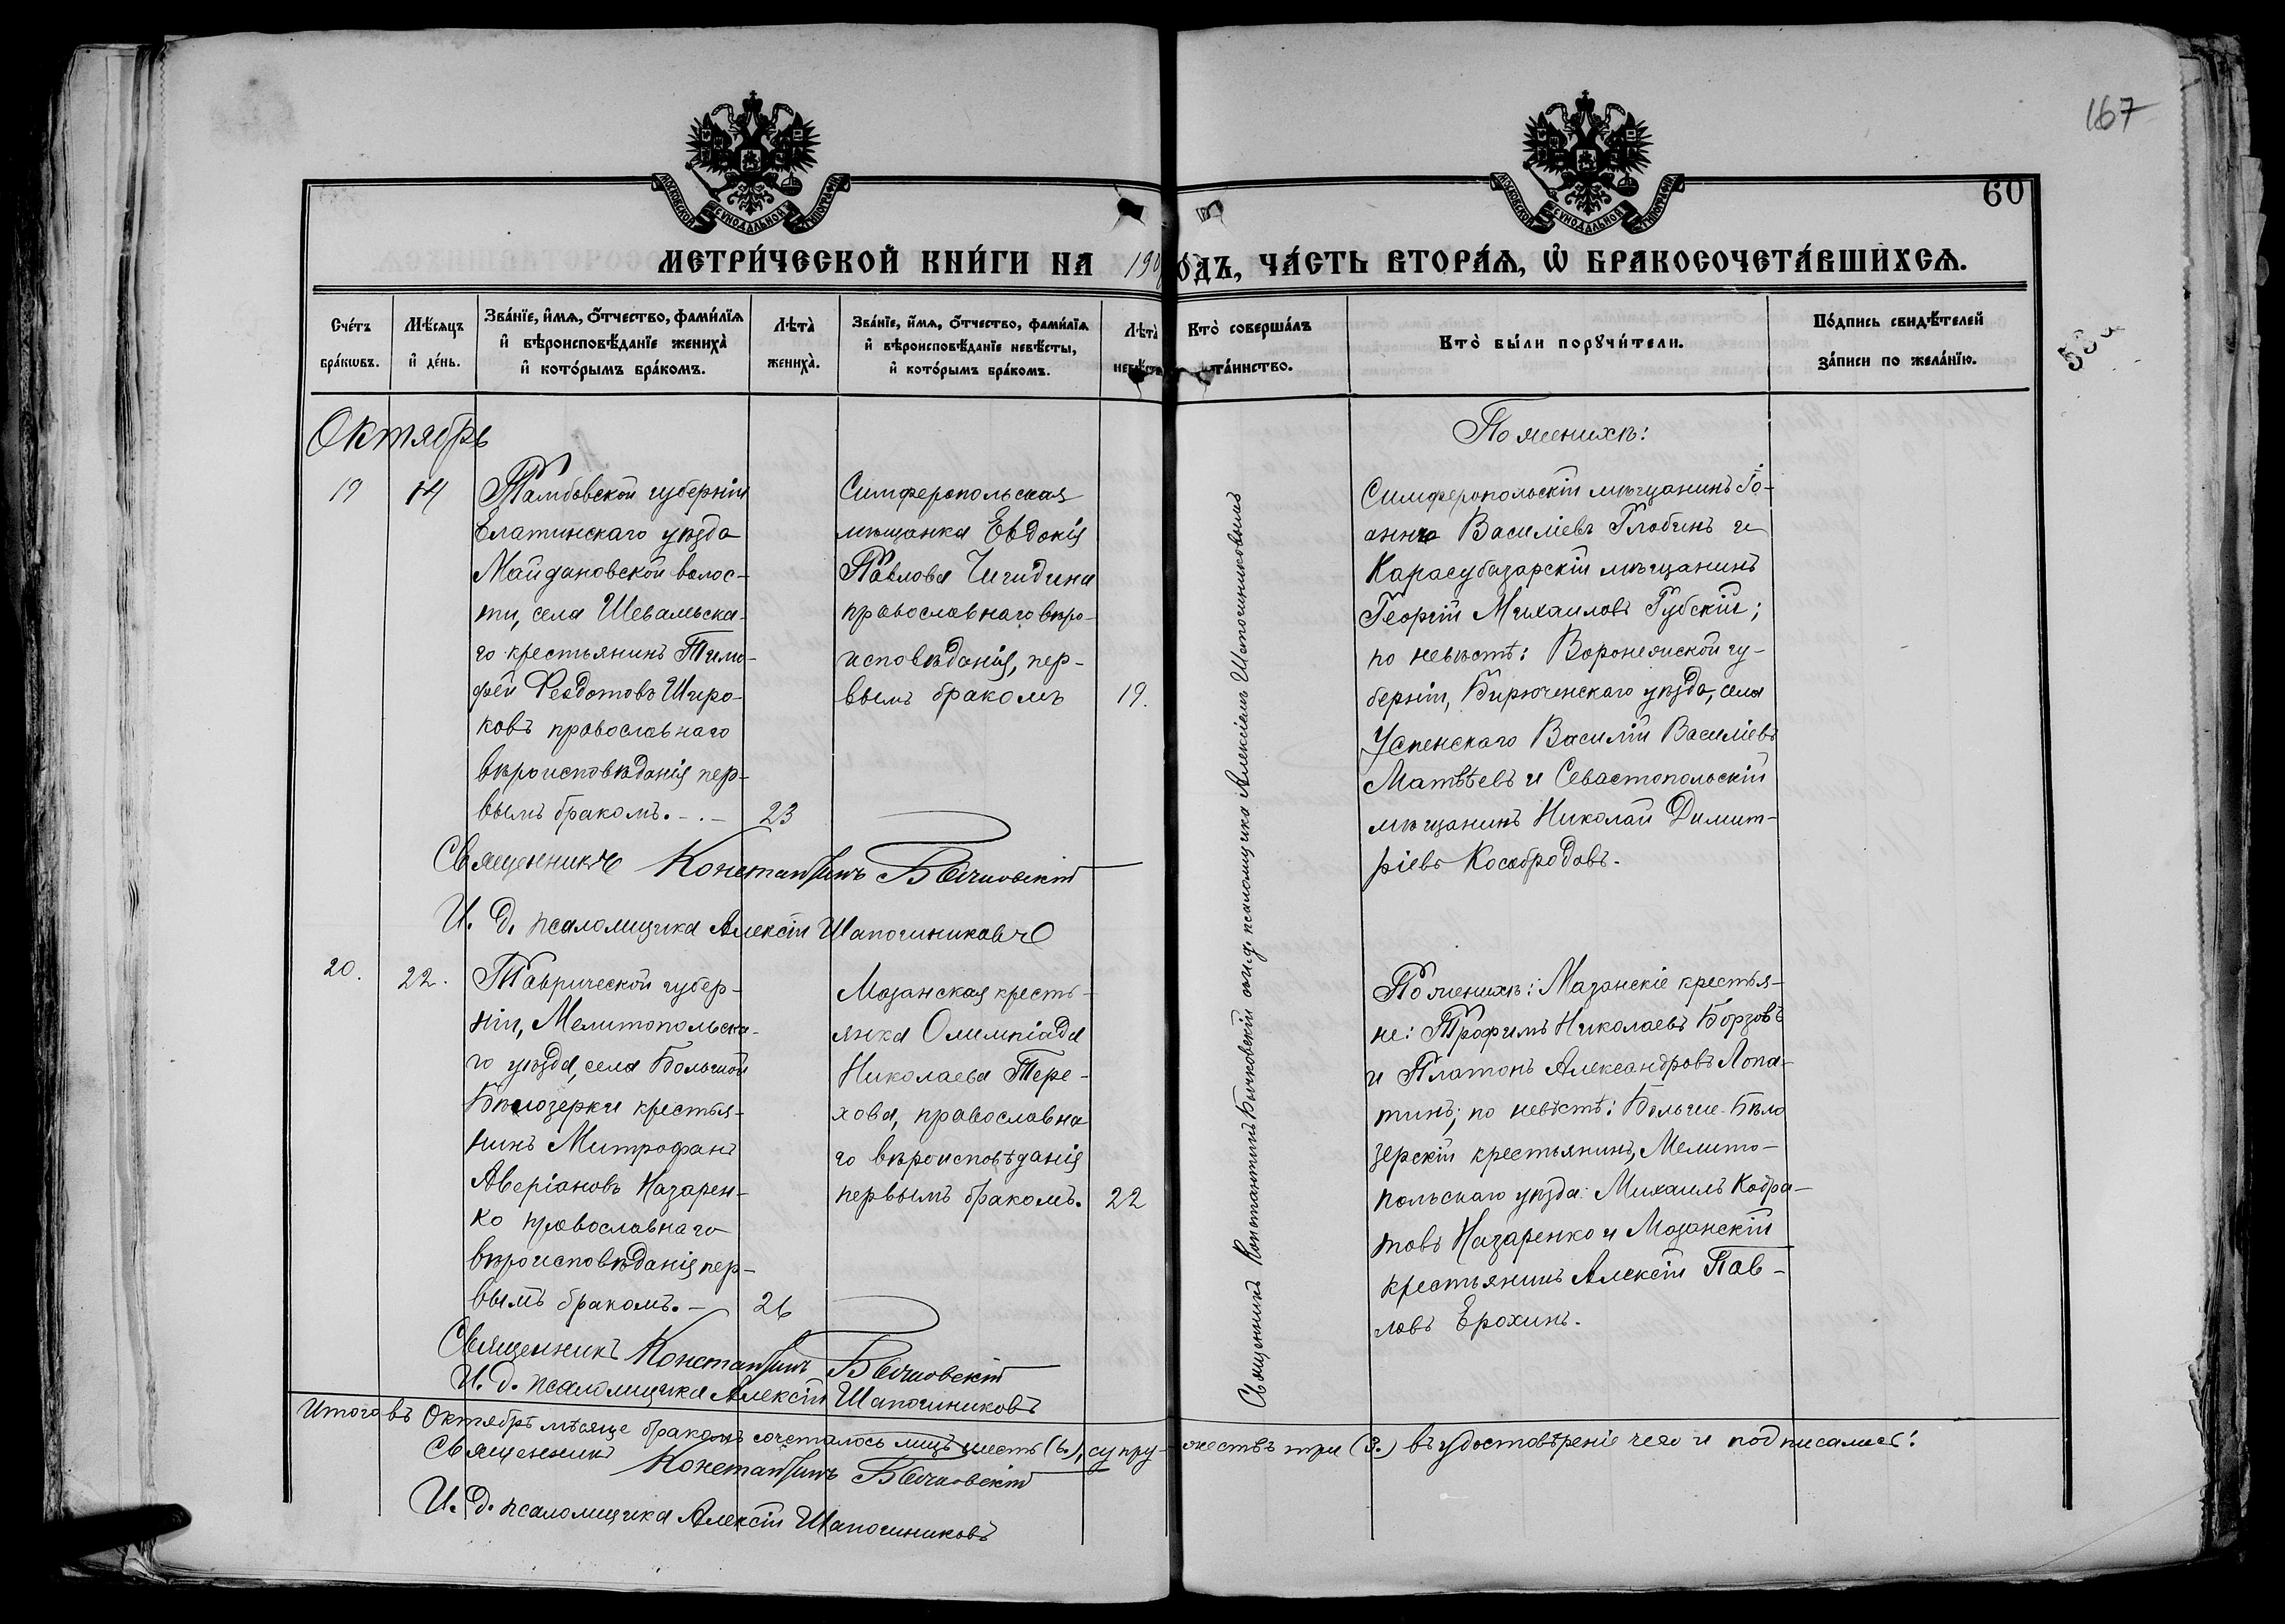 167
60
МОСКОВСКОЙ СУНОДАЛЬНОЙ ТИПОГРАФІИ
МОСКОВСКОЙ СУНОДАЛЬНОЙ ТИПОГРАФІИ
МЕТРИ́ЧЕСКОЙ КНИ́ГИ НА 190 ОДЪ, ЧА́СТЬ ВТОРА́Я, Ѡ҆ БРАКОСОЧЕТА́ВШИХСЯ.
Сче́тъ бра́кѡвъ.
Мѣ́сяцъ и҆ де́нь.
Зва́нїе, и҆́мя, о҆́тчество, фами́лїя и҆ вѣроисповѣ́данїе жениха̀ и҆ кото́рымъ бра́комъ.
Лѣта̀ жениха̀.
Зва́нїе, и҆́мя, о҆́тчество, фами́лїя и҆ вѣроисповѣ́данїе невѣ́сты, и҆ кото́рымъ бра́комъ.
Лѣта̀ невѣ́сты
Кто̀ соверша́лъ та́инство.
Кто̀ бы́ли порꙋчи́тели.
По́дпись свидѣ́телей за́писи по жела́нїю.
Октябрь
19
14
Тамбовской губерніи
Елатинскаго уѣзда
Майдановской волос-
ти, села Шевальска-
го крестьянинъ Тимо-
фей Ѳедотовъ Широ-
ковъ православнаго
вѣроисповѣданія пер-
вымъ бракомъ.-.-
23
Симферопольская
мѣщанка Евдокія
Павлова Чигидина
православнаго вѣро-
исповѣданія, пер-
вымъ бракомъ
19.
Священникъ Константинъ Бычковскій
И. д. псаломщика Алексій Шапошниковъ
Священникъ Константинъ Бычковскій и и.д. псаломщика Алексіемъ Шапошниковымъ
По женихѣ:
Симферопольскій мѣщанинъ Іо-
аннъ Василіевъ Глобинъ и
Карасубазарскій мѣщанинъ
Георгій Михаиловъ Губскій;
по невѣстѣ: Воронежской гу-
берніи, Бирюченскаго уѣзда, села
Успенскаго Василій Василіевъ
Матвѣевъ и Севастопольскій
мѣщанинъ Николай Димит-
ріевъ Кособродовъ.
20.
22.
Таврической губер-
ніи, Мелитопольска-
го уѣзда, села Большой
Бѣлозерки крестья-
нинъ Митрофанъ
Аверіановъ Назарен-
ко православнаго
вѣроисповѣданія пер-
вымъ бракомъ.-
26
Мазанская кресть-
янка Олимпіада
Николаева Тере-
хова, православна
го вѣроисповѣданія
первымъ бракомъ.
22
По женихѣ: Мазанскіе крестья-
не: Трофимъ Николаевъ Борзовъ
и Платонъ Александровъ Лопа-
тинъ; по невѣстѣ: Больше-Бѣло
зерскій крестьянинъ, Мелито-
польскаго уѣзда: Михаилъ Кодра-
товъ Назаренко и Мазанскій
крестьянинъ Алексій Пав-
ловъ Ерохинъ.
Священникъ Константинъ Бычковскій
И. д. псаломщика Алексій Шапошниковъ
Итого въ Октябрѣ мѣсяце бракомъ сочеталось лицъ шесть (6.), супру-жествъ три (3.) въ удостовѣреніе чего и подписались:
Священникъ Константинъ Бычковскій
И. д. псаломщика Алексій Шапошниковъ